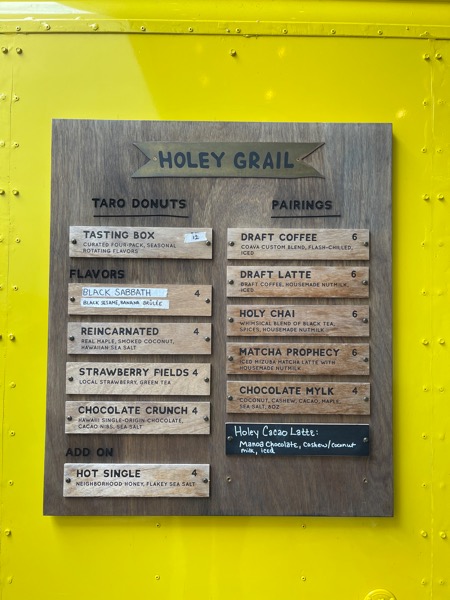 HOLEY GRAIL
TARO DONUTS
TASTING BOX 12
CURATED FOUR-PACK, SEASONAL
ROTATING FLAVORS
FLAVORS
BLACK SABBATH 4
BLACK SESAME, BANANA BRÛLÉE
REINCARNATED 4
REAL MAPLE, SMOKED COCONUT,
HAWAIIAN SEA SALT
STRAWBERRY FIELDS 4
LOCAL STRAWBERRY, GREEN TEA
CHOCOLATE CRUNCH 4
HAWAII SINGLE-ORIGIN CHOCOLATE,
CACAO NIBS, SEA SALT
ADD ON
HOT SINGLE 4
NEIGHBORHOOD HONEY, FLAKEY SEA SALT
PAIRINGS
DRAFT COFFEE 6
COAVA CUSTOM BLEND, FLASH-CHILLED,
ICED
DRAFT LATTE 6
DRAFT COFFEE, HOUSEMADE NUTMILK,
ICED
HOLY CHAI 6
WHIMSICAL BLEND OF BLACK TEA,
SPICES, HOUSEMADE NUTMILK
MATCHA PROPHECY 6
ICED MIZUBA MATCHA LATTE WITH
HOUSEMADE NUTMILK
CHOCOLATE MYLK 4
COCONUT, CASHEW, CACAO, MAPLE,
SEA SALT, 8OZ
Holey Cacao Latte:
Manoa Chocolate, cashew/coconut
milk, iced